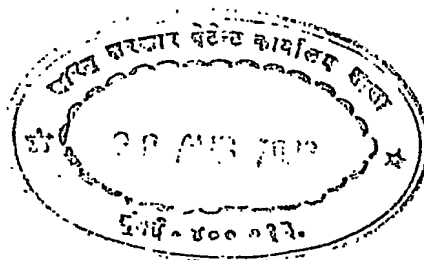 भारत सरकार पेटेन्ट कार्यालय शाखा
मुंबई - ४०० ०१३.